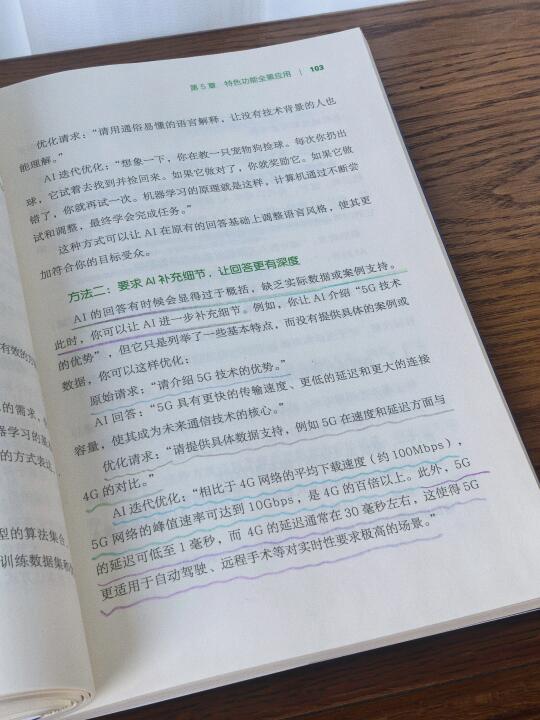 第5章 特色功能全景应用 | 103
优化请求：“请用通俗易懂的语言解释，让没有技术背景的人也
能理解。”
AI 迭代优化：“想象一下，你在教一只宠物狗捡球。每次你扔出
球，它试着去找到并捡回来。如果它做对了，你就奖励它。如果它做
错了，你就再试一次。机器学习的原理就是这样，计算机通过不断尝
试和调整，最终学会完成任务。”
这种方式可以让 AI 在原有的回答基础上调整语言风格，使其更
加符合你的目标受众。
方法二：要求 AI 补充细节，让回答更有深度
AI 的回答有时候会显得过于概括，缺乏实际数据或案例支持。
此时，你可以让 AI 进一步补充细节。例如，你让 AI 介绍“5G 技术
的优势”，但它只是列举了一些基本特点，而没有提供具体的案例或
数据，你可以这样优化：
原始请求：“请介绍 5G 技术的优势。”
AI 回答：“5G 具有更快的传输速度、更低的延迟和更大的连接
容量，使其成为未来通信技术的核心。”
优化请求：“请提供具体数据支持，例如 5G 在速度和延迟方面与
4G 的对比。”
AI 迭代优化：“相比于 4G 网络的平均下载速度（约 100Mbps），
5G 网络的峰值速率可达到 10Gbps，是 4G 的百倍以上。此外，5G
的延迟可低至 1 毫秒，而 4G 的延迟通常在 30 毫秒左右，这使得 5G
更适用于自动驾驶、远程手术等对实时性要求极高的场景。”
有效的方
的需求，
器学习的基
的方式表达
型的算法集合
训练数据集和